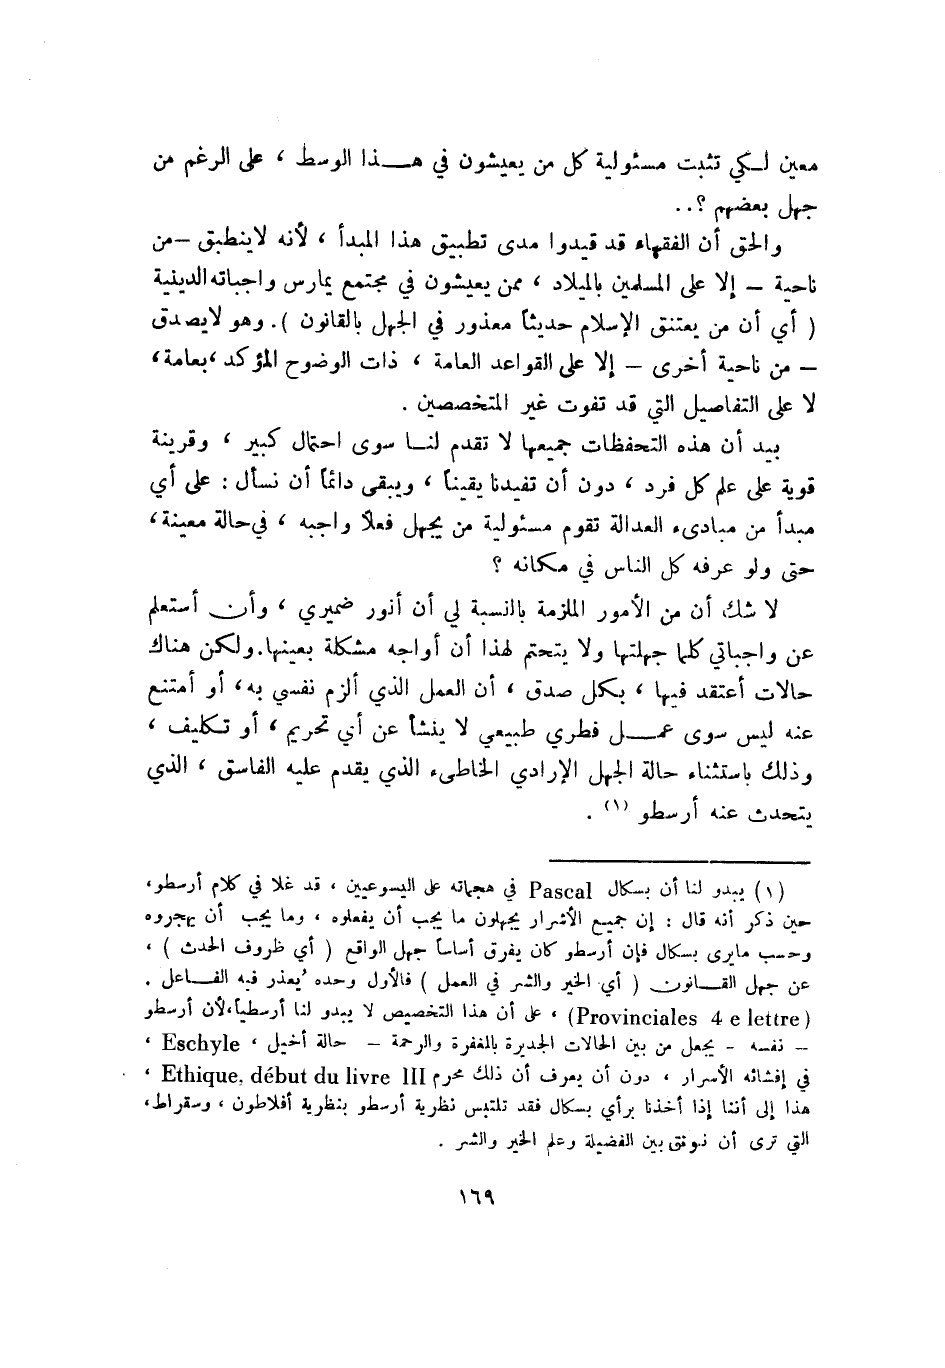 معين لـكي تثبت مسئولية كل من يعيشون في هــذا الوسط ، على الرغم من
جهل بعضهم ؟..
والحق أن الفقهاء قد قيدوا مدى تطبيق هذا المبدأ ، لأنه لاينطبق –من
ناحية – إلا على المسلمين بالميلاد ، ممن يعيشون في مجتمع يمارس واجباته الدينية
( أي أن من يعتنق الإسلام حديثاً معذور في الجهل بالقانون ). وهو لايصدق
– من ناحية أخرى – إلا على القواعد العامة ، ذات الوضوح المؤكد ،بعامة،
لا على التفاصيل التي قد تفوت غير المتخصصين .
بيد أن هذه التحفظات جميعها لا تقدم لنــا سوى احتمال كبير ، وقرينة
قوية على علم كل فرد ، دون أن تفيدنا يقيناً ، ويبقى دائماً أن نسأل : على أي
مبدأ من مبادىء العدالة تقوم مسئولية من يجهل فعلاً واجبه ، في حالة معينة،
حتى ولو عرفه كل الناس في مكانه ؟
لا شك أن من الأمور الملزمة بالنسبة لي أن أنور ضميري ، وأن أستعلم
عن واجباتي كلما جهلتها ولا يتحتم لهذا أن أواجه مشكلة بعينها.ولكن هناك
حالات أعتقد فيها ، بكل صدق ، أن العمل الذي ألزم نفسي به، أو أمتنع
عنه ليس سوى عمــل فطري طبيعي لا ينشأ عن أي تحريم ، أو تكليف ،
وذلك باستثناء حالة الجهل الإرادي الخاطىء الذي يقدم عليه الفاسق ، الذي
يتحدث عنه أرسطو (١) .
(١) يبدو لنا أن بسكال Pascal في هجماته على اليسوعيين ، قد غلا في كلام أرسطو،
حين ذكر أنه قال : إن جميع الأشرار يجهلون ما يجب أن يفعلوه ، وما يجب أن يهجروه
وحسب مايرى بسكال فإن أرسطو كان يفرق أساساً جهل الواقع ( أي ظروف الحدث ) ،
عن جهل القــانون ( أي الخير والشر في العمل ) فالأول وحده يُعذر فيه الفــاعل .
(Provinciales 4 e lettre) ، على أن هذا التخصيص لا يبدو لنا أرسطياً،لأن أرسطو
– نفسه – يجعل من بين الحالات الجديرة بالمغفرة والرحمة – حالة أخيل ، Eschyle ،
في إفشائه الأسرار ، دون أن يعرف أن ذلك محرم Ethique, début du livre III ،
هذا إلى أننا إذا أخذنا برأي بسكال فقد تلتبس نظرية أرسطو بنظرية أفلاطون ، وسقراط،
التي ترى أن نوثق بين الفضيلة وعلم الخير والشر .
١٦٩